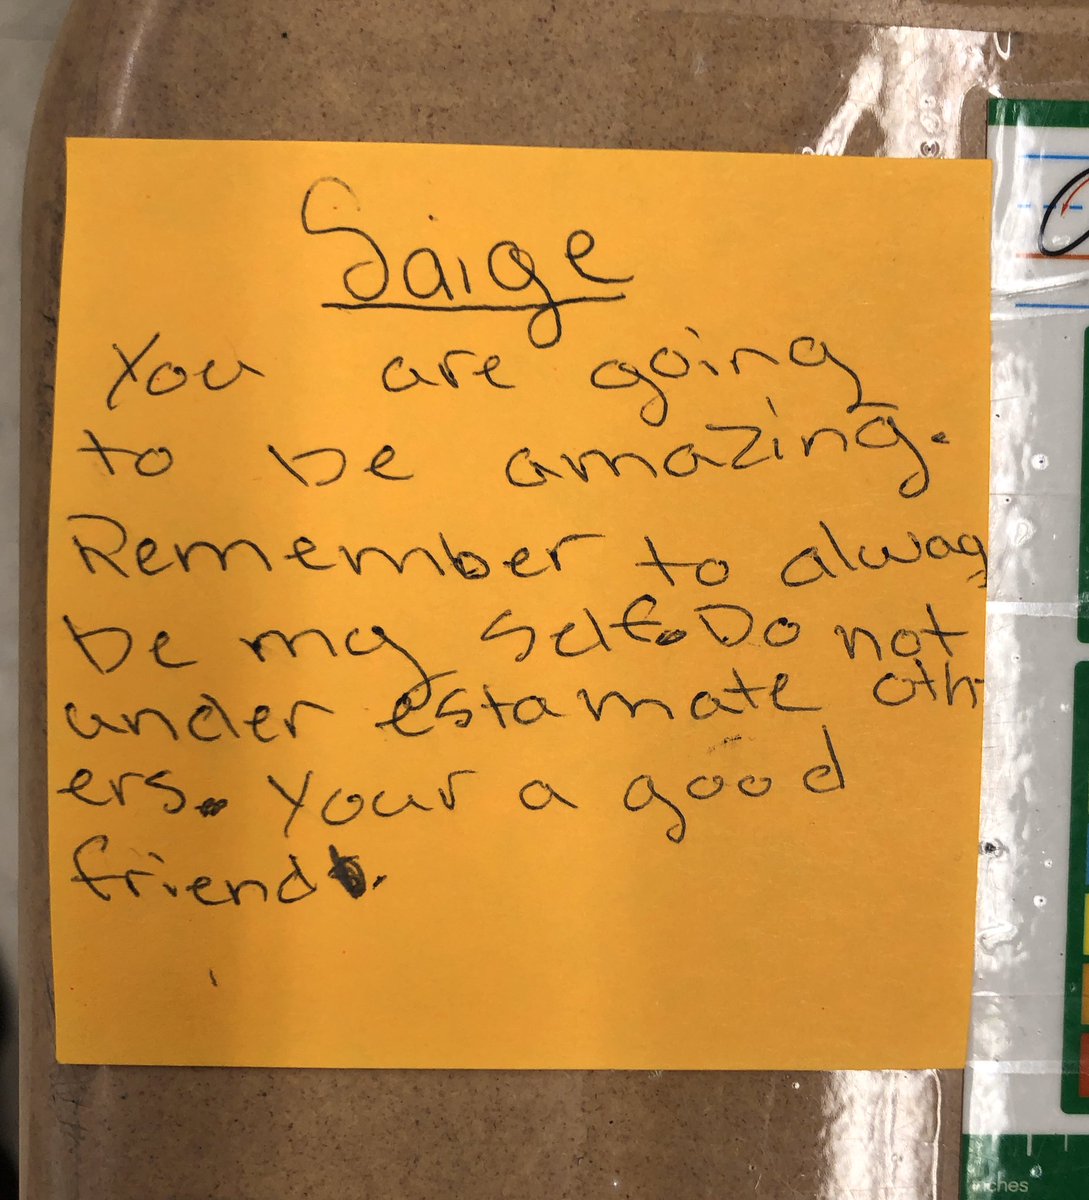 Saige
You are going
to be amazing.
Remember to always
be my self. Do not
under estamate oth-
ers. Your a good
friend.
inches